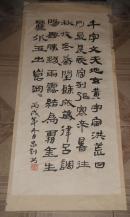 千字文天地玄黃宇宙洪荒日
月盈昃辰宿列張寒來暑往
秋收冬藏閏餘成歲律呂調
陽雲騰致雨露結為霜金生
麗水玉出崑岡 丙戌年